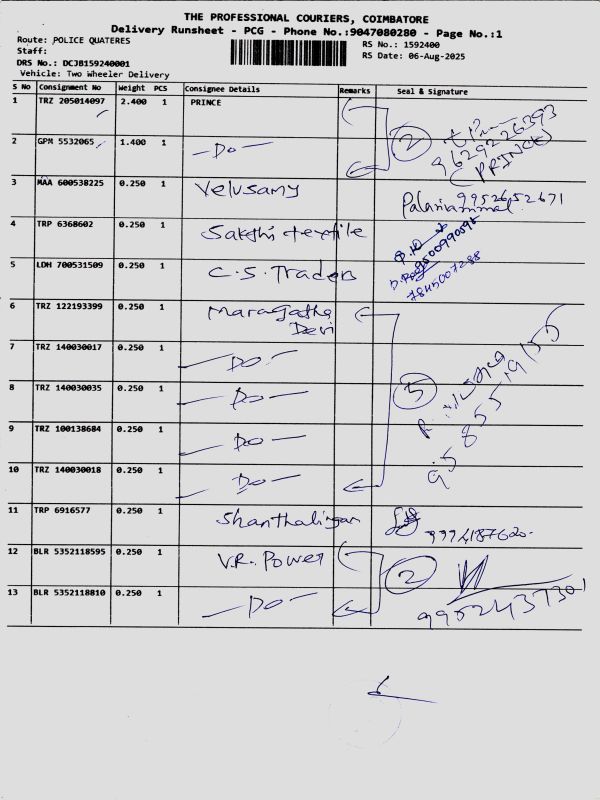 THE PROFESSIONAL COURIERS, COIMBATORE
Delivery Runsheet - PCG - Phone No.:9047080280 - Page No.:1
Route: POLICE QUATERES
RS No.: 1592400
Staff:
RS Date: 06-Aug-2025
DRS No.: DCJB159240001
Vehicle: Two Wheeler Delivery
S No Consignment No Weight PCS Consignee Details Remarks Seal & Signature
1 TRZ 205014097 2.400 1 PRINCE
2 GPM 5532065 1.400 1 -Do- 2 9629226393
(PRINCE)
3 MAA 600538225 0.250 1 Velusamy Palaniammal 9952652671
4 TRP 6368602 0.250 1 Sakthi textile 9500990595
5 LDH 700531509 0.250 1 C.S. Traders 7845007288
6 TRZ 122193399 0.250 1 Maragatha
Devi
7 TRZ 140030017 0.250 1 -Do-
8 TRZ 140030035 0.250 1 -Do- 5 9585519155
9 TRZ 100138684 0.250 1 -Do-
10 TRZ 140030018 0.250 1 -Do-
11 TRP 6916577 0.250 1 Shanthalingam 9994187620
12 BLR 5352118595 0.250 1 V.R. Power 2
13 BLR 5352118810 0.250 1 -Do- 9952437301